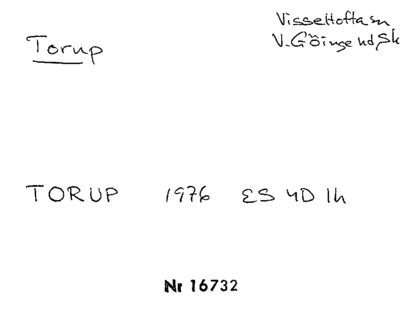 Torup
Visseltofta sn
V. Göinge hd Sk
TORUP 1976 ES 4D 1h
Nr 16732